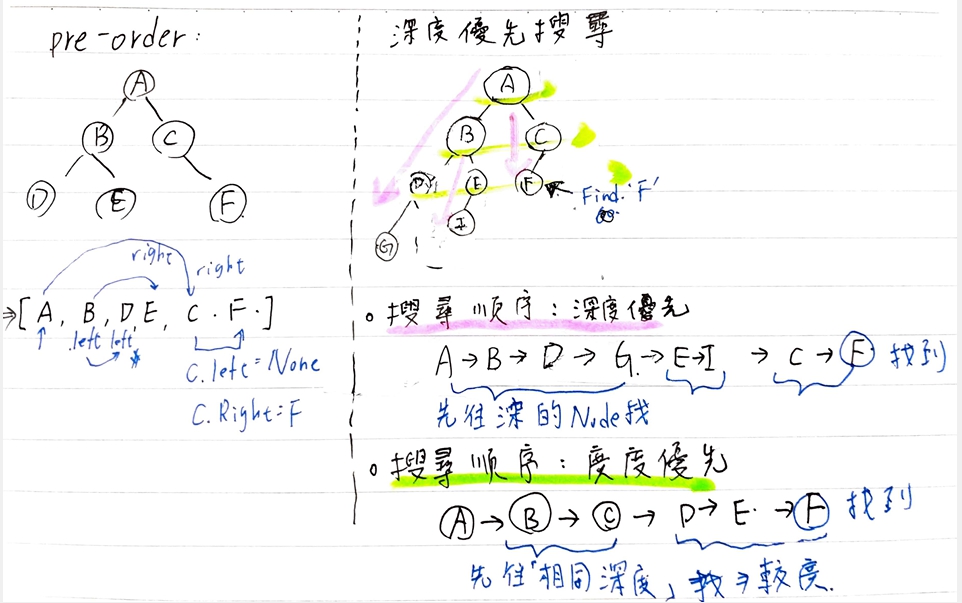 pre-order:
A
B
C
D
E
F
right
right
⇒[A, B, D, E, C. F.]
left left
C.left=None
C.Right=F
深度優先搜尋
A
B
C
D
E
F
Find 'F'
I
G
。搜尋順序:深度優先
A→B→D→G→E→I→C→F 找到
先往深的Node找
。搜尋順序:廣度優先
A→B→C→D→E→F 找到
先往「相同深度」找